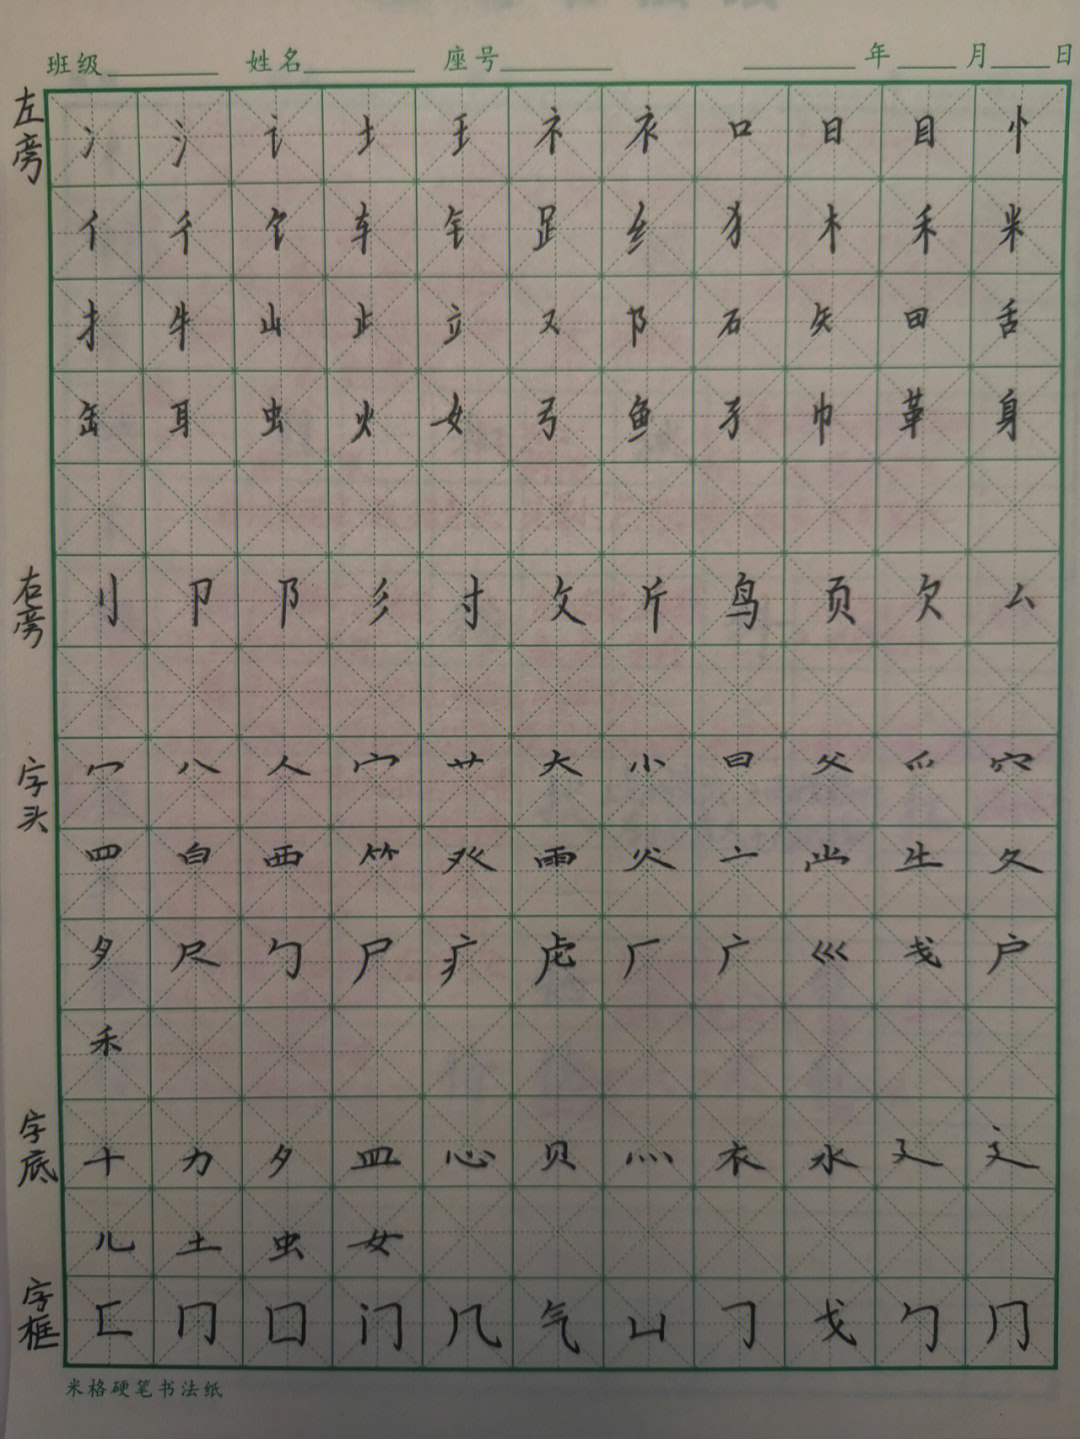 班级 姓名 座号 年 月 日
左旁
冫 氵 讠 土 王 礻 衤 口 日 目 忄
亻 彳 饣 车 钅 𧾷 纟 犭 木 禾 米
扌 牛 山 止 立 又 阝 石 矢 田 舌
缶 耳 虫 火 女 弓 鱼 孑 巾 革 身
右旁
刂 卩 阝 彡 寸 攵 斤 鸟 页 欠 厶
字头
冖 八 人 宀 艹 大 小 曰 父 爫 穴
四 白 西 𥫗 癶 雨 火 亠 龸 龶 夂
夕 尺 勹 尸 疒 虍 厂 广 巛 戋 户
禾
字底
十 力 夕 皿 心 贝 灬 衣 水 廴 辶
儿 土 虫 女
字框
匚 冂 囗 门 几 气 凵 𠃌 戈 勹 冂
米格硬笔书法纸